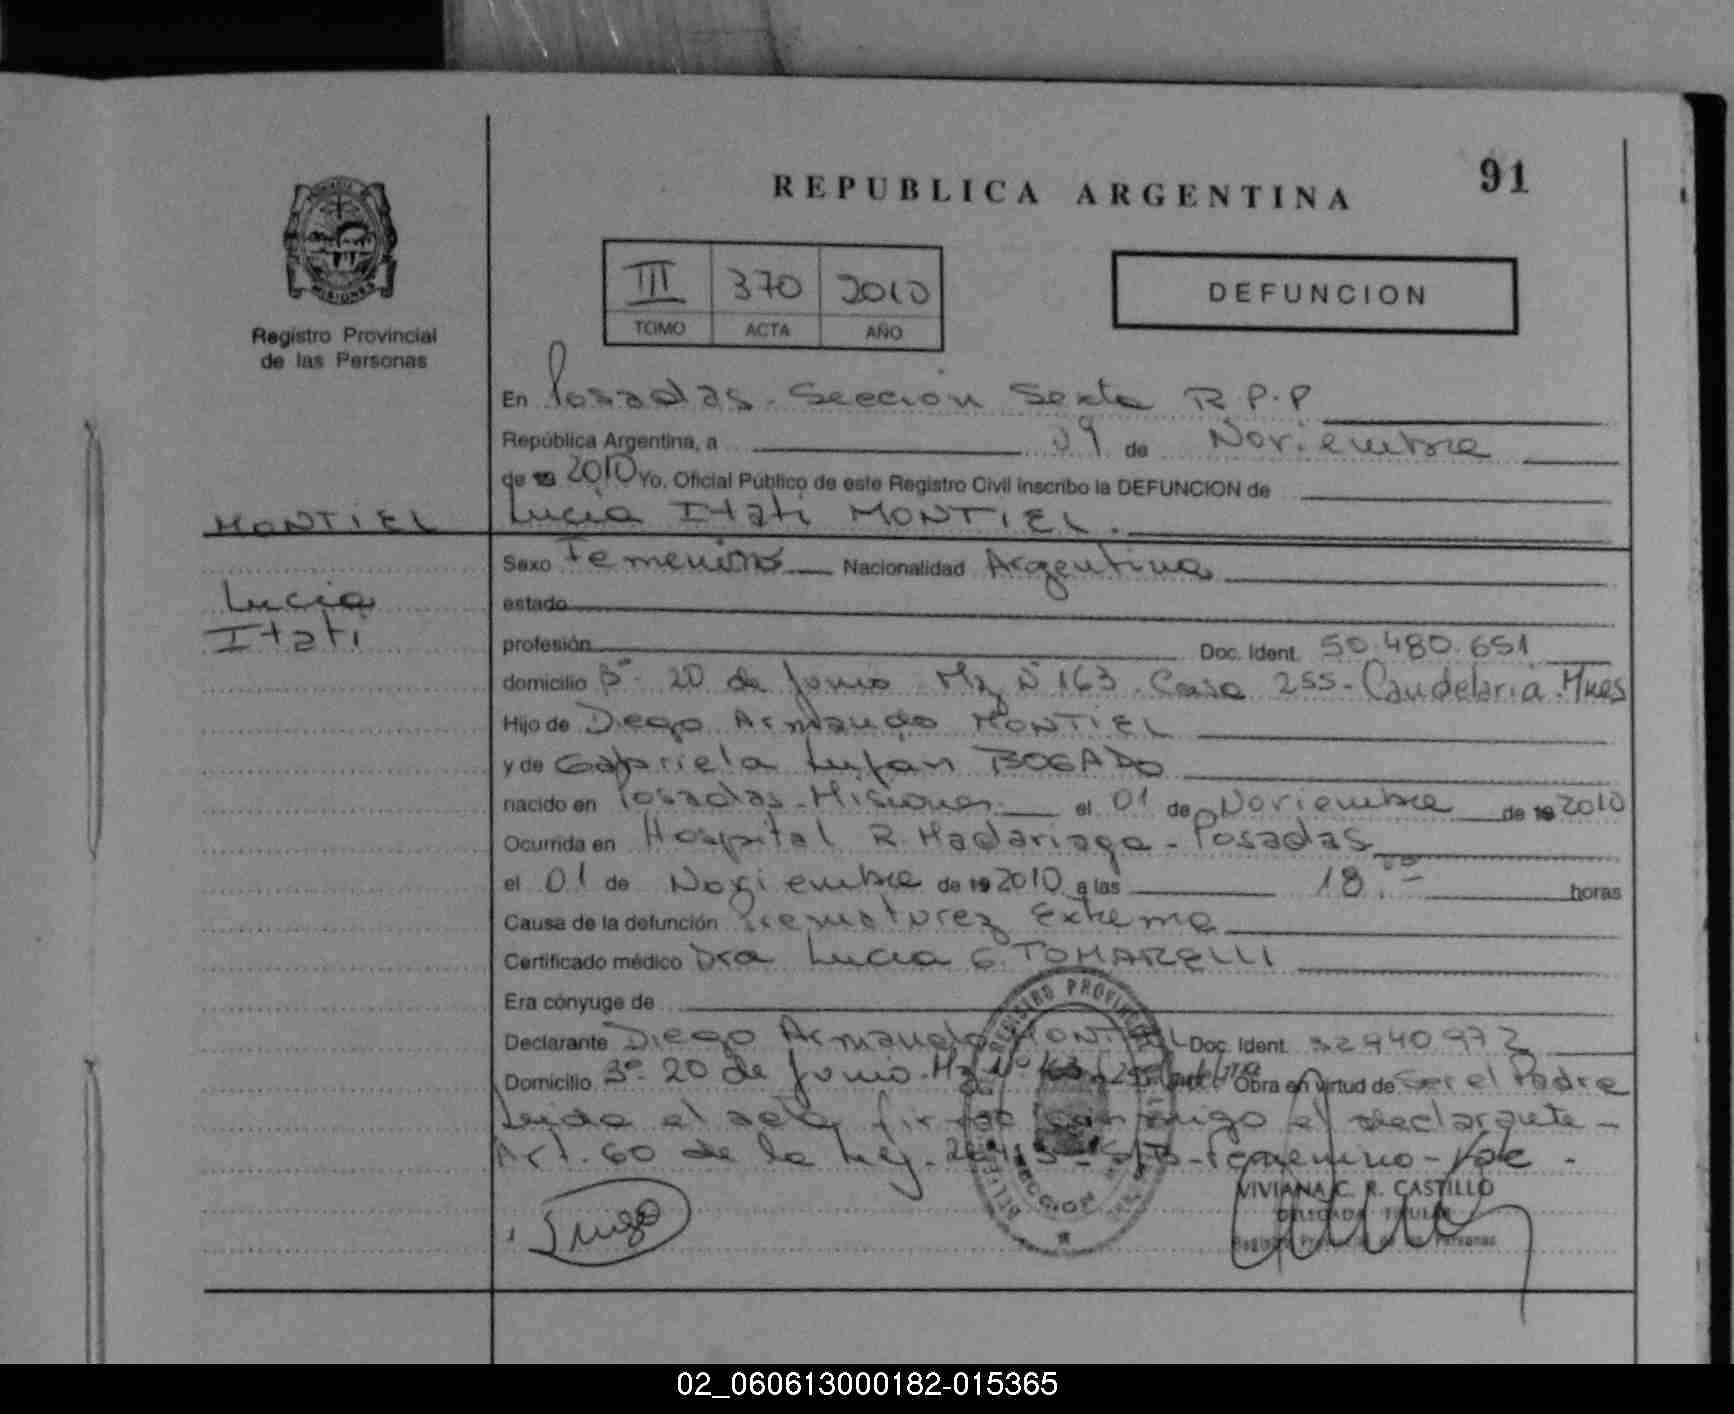 91
REPUBLICA ARGENTINA
MISIONES
Registro Provincial
de las Personas
III 370 2010
TOMO ACTA AÑO
DEFUNCION
En Posadas. Sección Sexta R.P.P
República Argentina, a 09 de Noviembre
de 19 2010 Yo, Oficial Público de este Registro Civil inscribo la DEFUNCION de
MONTIEL
Lucia Itati MONTIEL.
Sexo Femenino Nacionalidad Argentina
Lucia
Itati
estado
profesión Doc. Ident. 50.480.651
domicilio Bº. 20 de Junio. Mz Nº 163. Casa 255- Candelaria. Mnes
Hijo de Diego Armando MONTIEL
y de Gabriela Luján BOGADO
nacido en Posadas-Misiones. el 01 de Noviembre de 19 2010
Ocurrida en Hospital R. Madariaga - Posadas
el 01 de Noviembre de 19 2010 a las 18.00 horas
Causa de la defunción Prematurez Extrema
Certificado médico Dra Lucia G. TOMARELLI
Era cónyuge de
Declarante Diego Armando MONTIEL Doc. Ident. 32940972
Domicilio Bº. 20 de Junio. Mz Nº 163 Obra en virtud de Ser el Padre
Leida el acta firma conmigo el declarante-
Art. 60 de la Ley. - S/B-Femenino-Vale -
REGISTRO PROVINCIAL
VIVIANA C. R. CASTILLO
DELEGADA TITULAR
Registro Provincial de las Personas
02_060613000182-015365